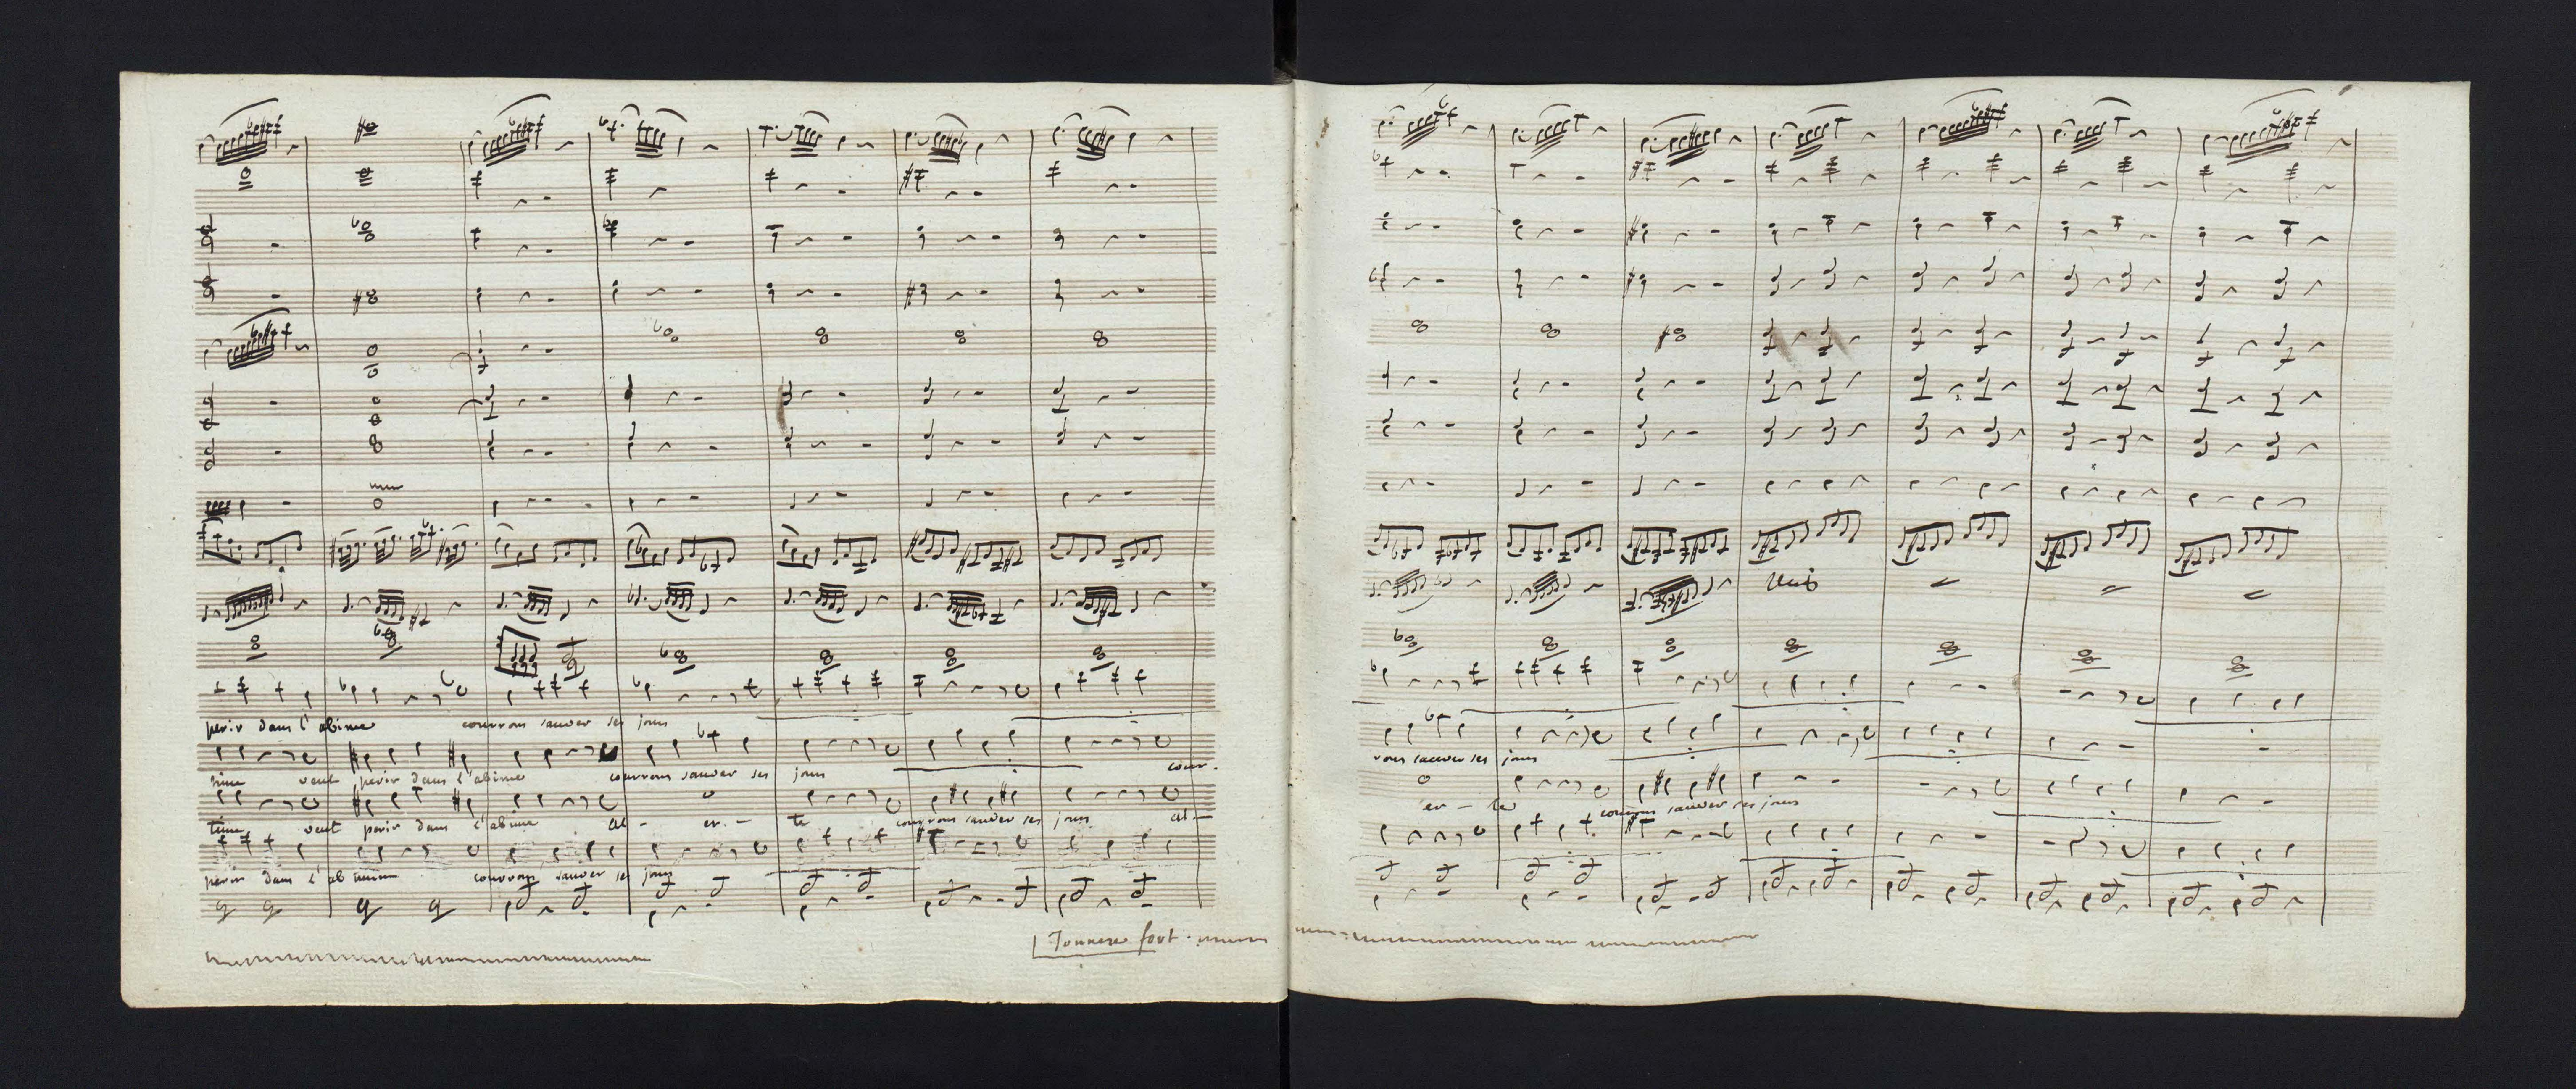 perir dans l'abime courrons sauver ses jours
sime veut perir dans l'abime courrons sauver ses jours cour-
time veut perir dans l'abime al - er - te courrons sauver ses jours al -
perir dans l'abime courrons sauver ses jours
Tonnere fort
unis
rons sauver ses jours
er - te courrons sauver ses jours